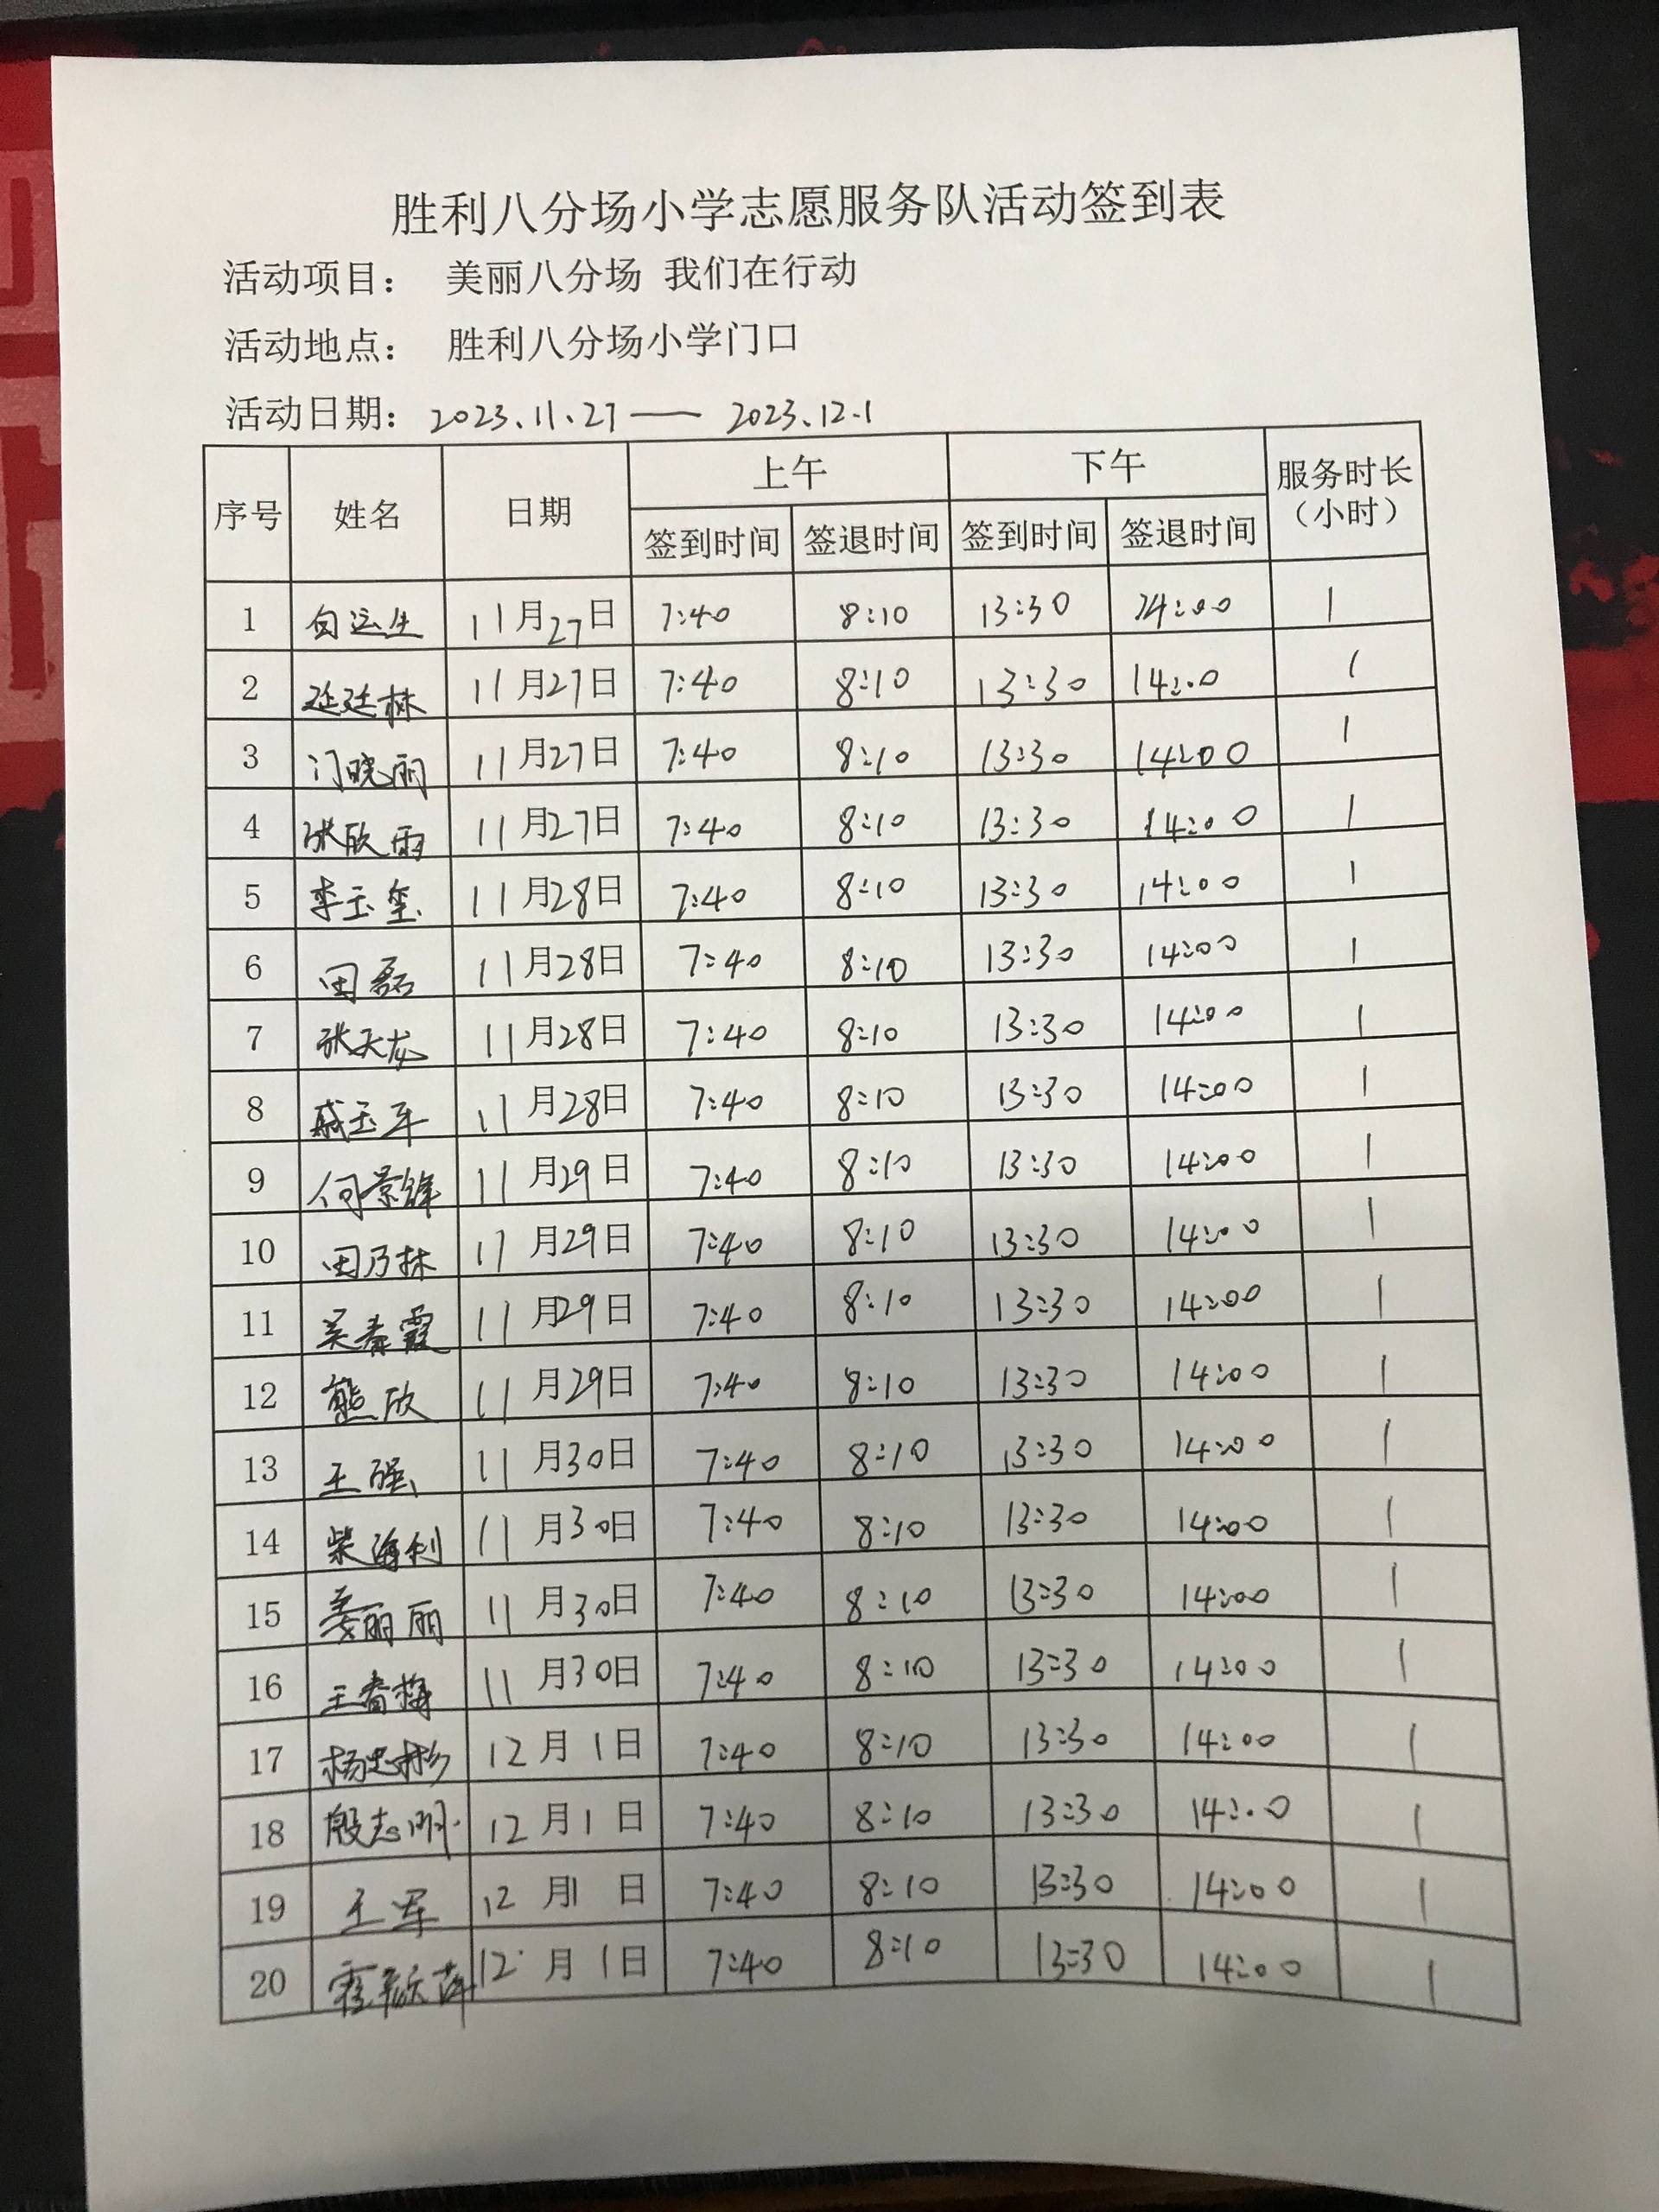 胜利八分场小学志愿服务队活动签到表
活动项目： 美丽八分场 我们在行动
活动地点： 胜利八分场小学门口
活动日期：2023.11.27——2023.12.1
序号 姓名 日期 上午 下午 服务时长（小时）
签到时间 签退时间 签到时间 签退时间
1 白运生 11月27日 7:40 8:10 13:30 14:00 1
2 延廷林 11月27日 7:40 8:10 13:30 14:00 1
3 门晓丽 11月27日 7:40 8:10 13:30 14:00 1
4 张欣雨 11月27日 7:40 8:10 13:30 14:00 1
5 李玉玺 11月28日 7:40 8:10 13:30 14:00 1
6 田磊 11月28日 7:40 8:10 13:30 14:00 1
7 张天龙 11月28日 7:40 8:10 13:30 14:00 1
8 戚玉军 11月28日 7:40 8:10 13:30 14:00 1
9 何景锋 11月29日 7:40 8:10 13:30 14:00 1
10 田乃林 11月29日 7:40 8:10 13:30 14:00 1
11 吴春霞 11月29日 7:40 8:10 13:30 14:00 1
12 熊欣 11月29日 7:40 8:10 13:30 14:00 1
13 王强 11月30日 7:40 8:10 13:30 14:00 1
14 柴海利 11月30日 7:40 8:10 13:30 14:00 1
15 姜丽丽 11月30日 7:40 8:10 13:30 14:00 1
16 王春梅 11月30日 7:40 8:10 13:30 14:00 1
17 杨忠彬 12月1日 7:40 8:10 13:30 14:00 1
18 殷志刚 12月1日 7:40 8:10 13:30 14:00 1
19 王军 12月1日 7:40 8:10 13:30 14:00 1
20 12月1日 7:40 8:10 13:30 14:00 1